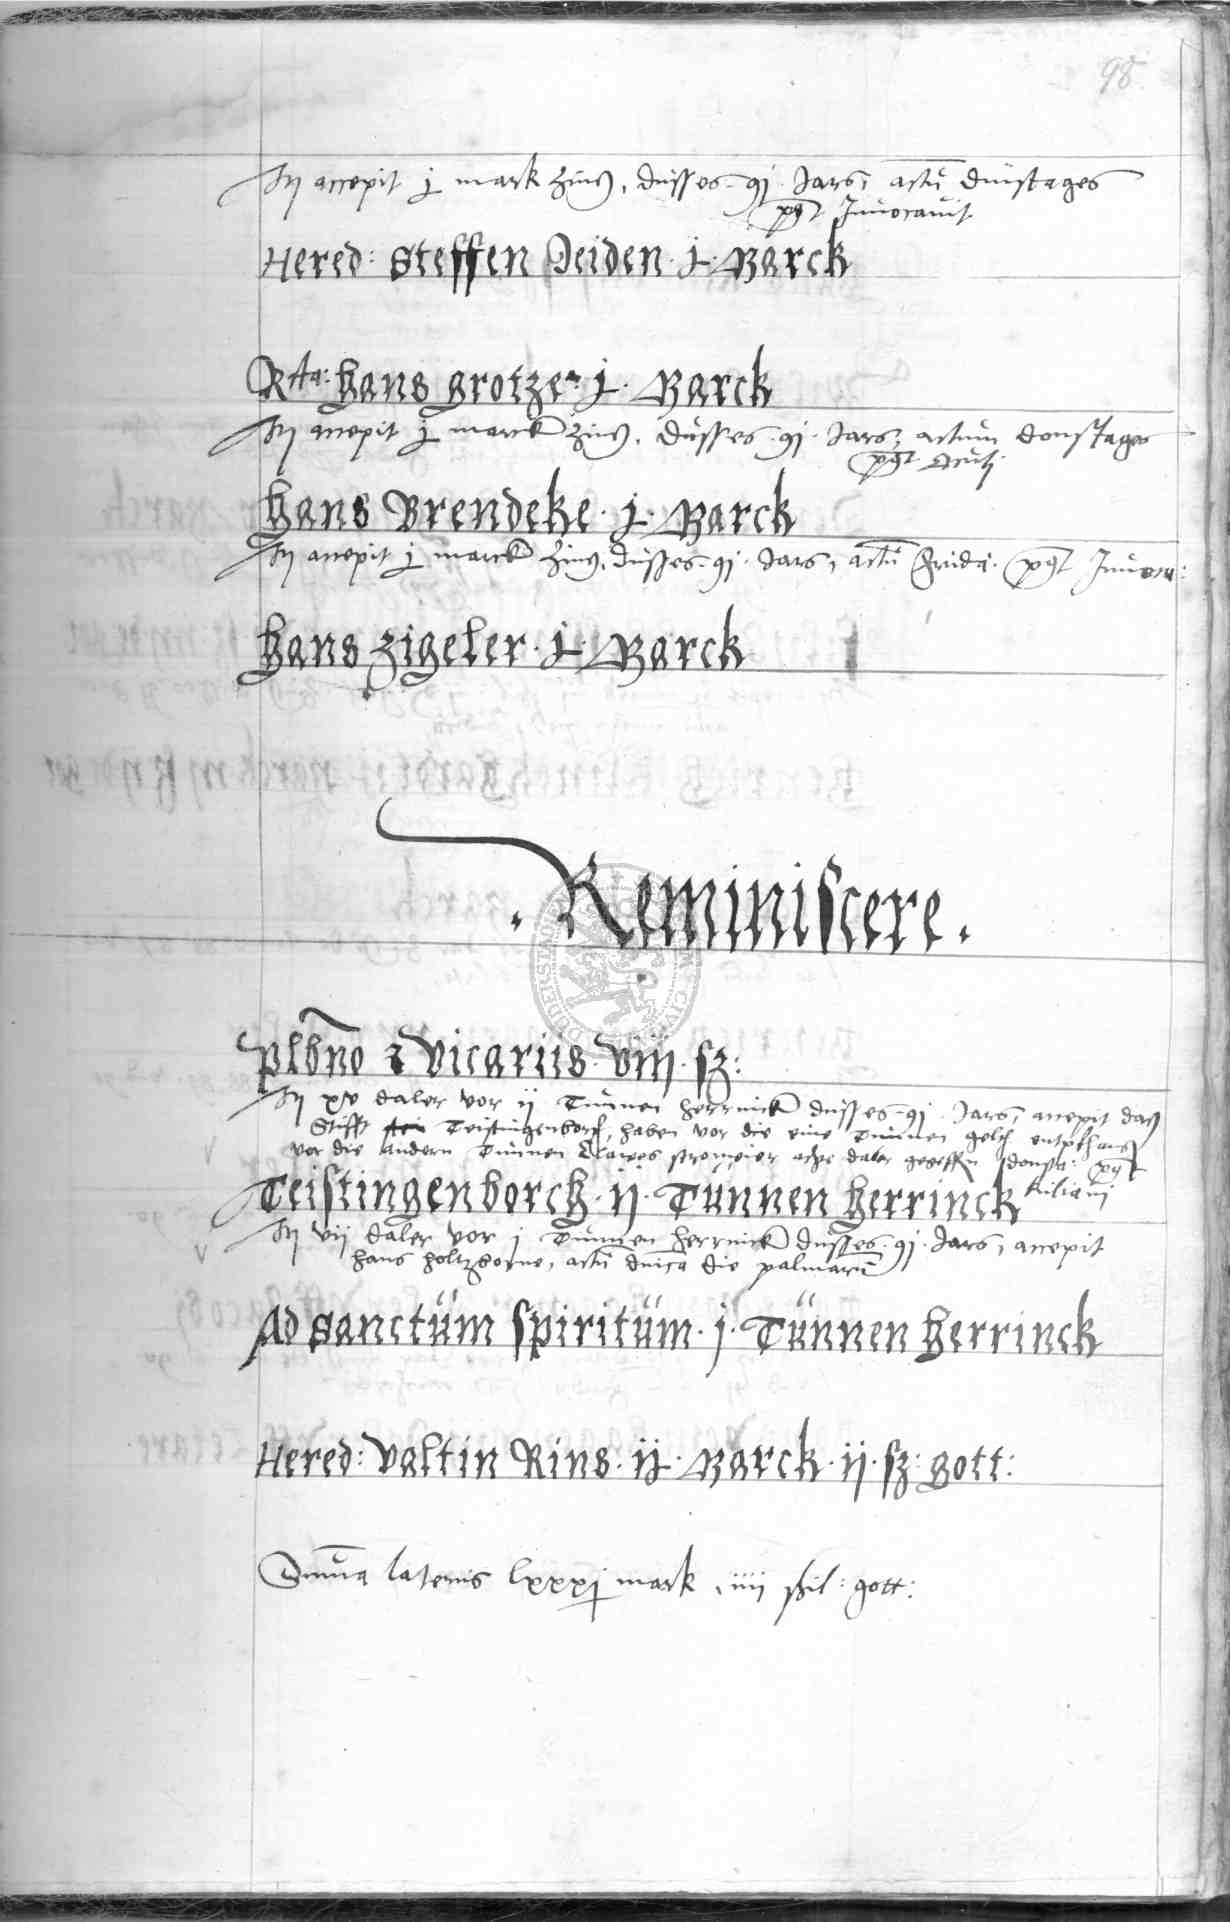 98
It accepit j mark zins, dusses 91 Jars, actū dinstages
pōst Invocavit
Hered: Steffen Jeiden j Marck
Rta: Hans Grotzen j Marck
It accepit j marck zins, dusses 91 Jars, actum donstages
pōst Oculj
Hans Brendeke j Marck
It accepit j marck zins, dusses 91 Jars, actū Frida: pōst Invoca:
Hans Zigeler j Marck
Reminiscere.
plbno & vicariis viij sz:
It xv daler vor ij Tunnen herrinck dusses 91 Jars, accepit das
Stifft Teistingenborch, haben vor die eine Tunnen gelt entpfhangen
vor die andern Tunnen Clawes stromeier achte daler gegeffen donsta: pōst
Kiliani
Teistingenborch ij Tunnen herrinck
It vij daler vor j Tunnen herrinck dusses 91 Jars, accepit
Hans Holtzborne, actū dnica die palmarū
Ad Sanctum Spiritum j Tunnen herrinck
Hered: Valtin Rins ij Marck ij sz: Gott:
Suma lateris lxxxj mark, iiij schil: gott:
DUDERSTADT CIVI